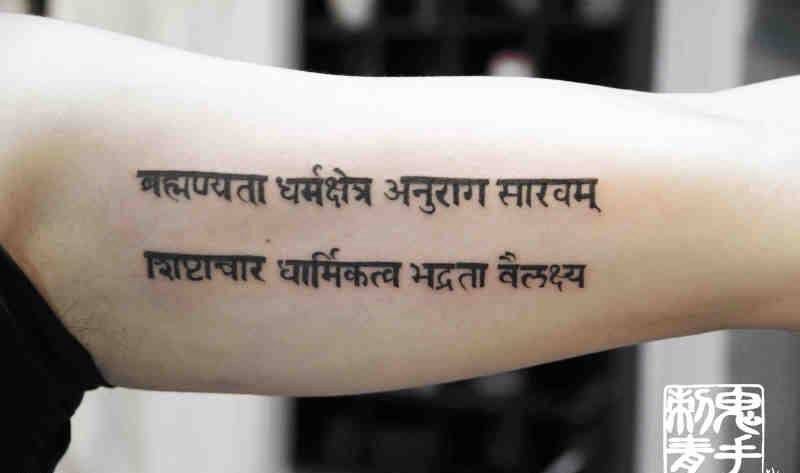 ब्रह्मण्यता धर्मक्षेत्र अनुराग सारवम्
शिष्टाचार धार्मिकत्व भद्रता वैलक्ष्य
刺鬼
青手